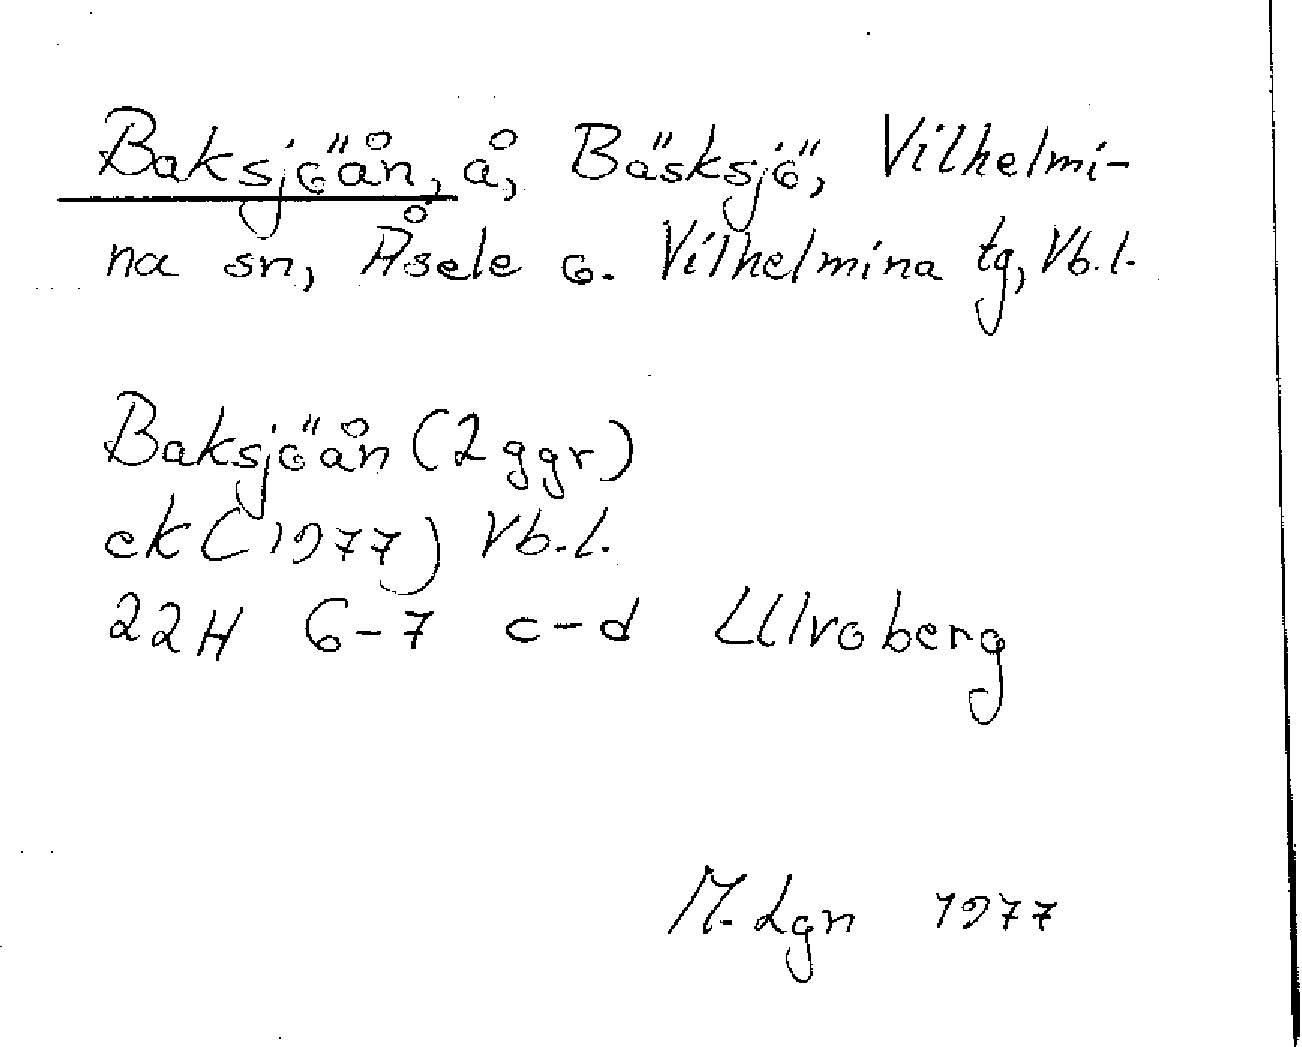 Baksjöån, å, Bäsksjö, Vilhelmi-
na sn, Åsele o. Vilhelmina tg, Vb.l.
Baksjöån (2 ggr)
ek (1977) Vb.l.
22H 6-7 c-d Ulvoberg
M. Lgn 1977